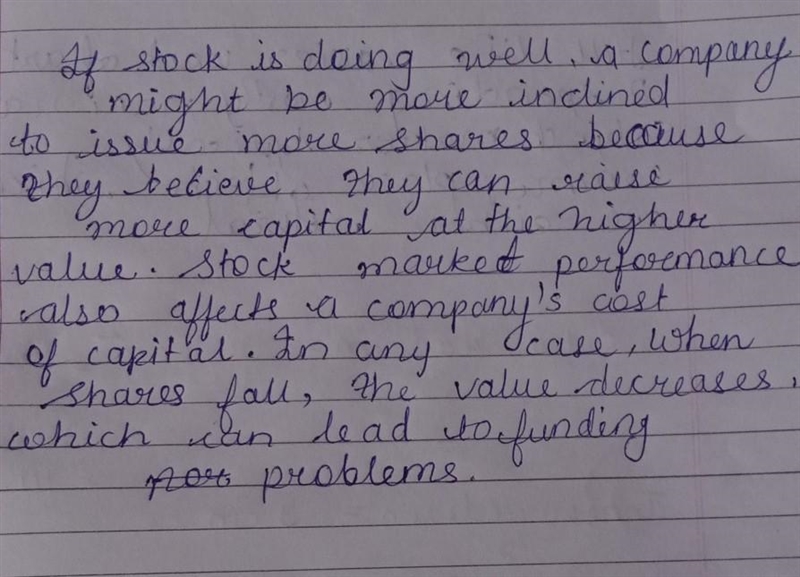 If stock is doing well, a company
might be more inclined
to issue more shares because
they believe they can raise
more capital at the higher
value. Stock market performance
also affects a company's cost
of capital. In any case, when
shares fall, the value decreases,
which can lead to funding
problems.